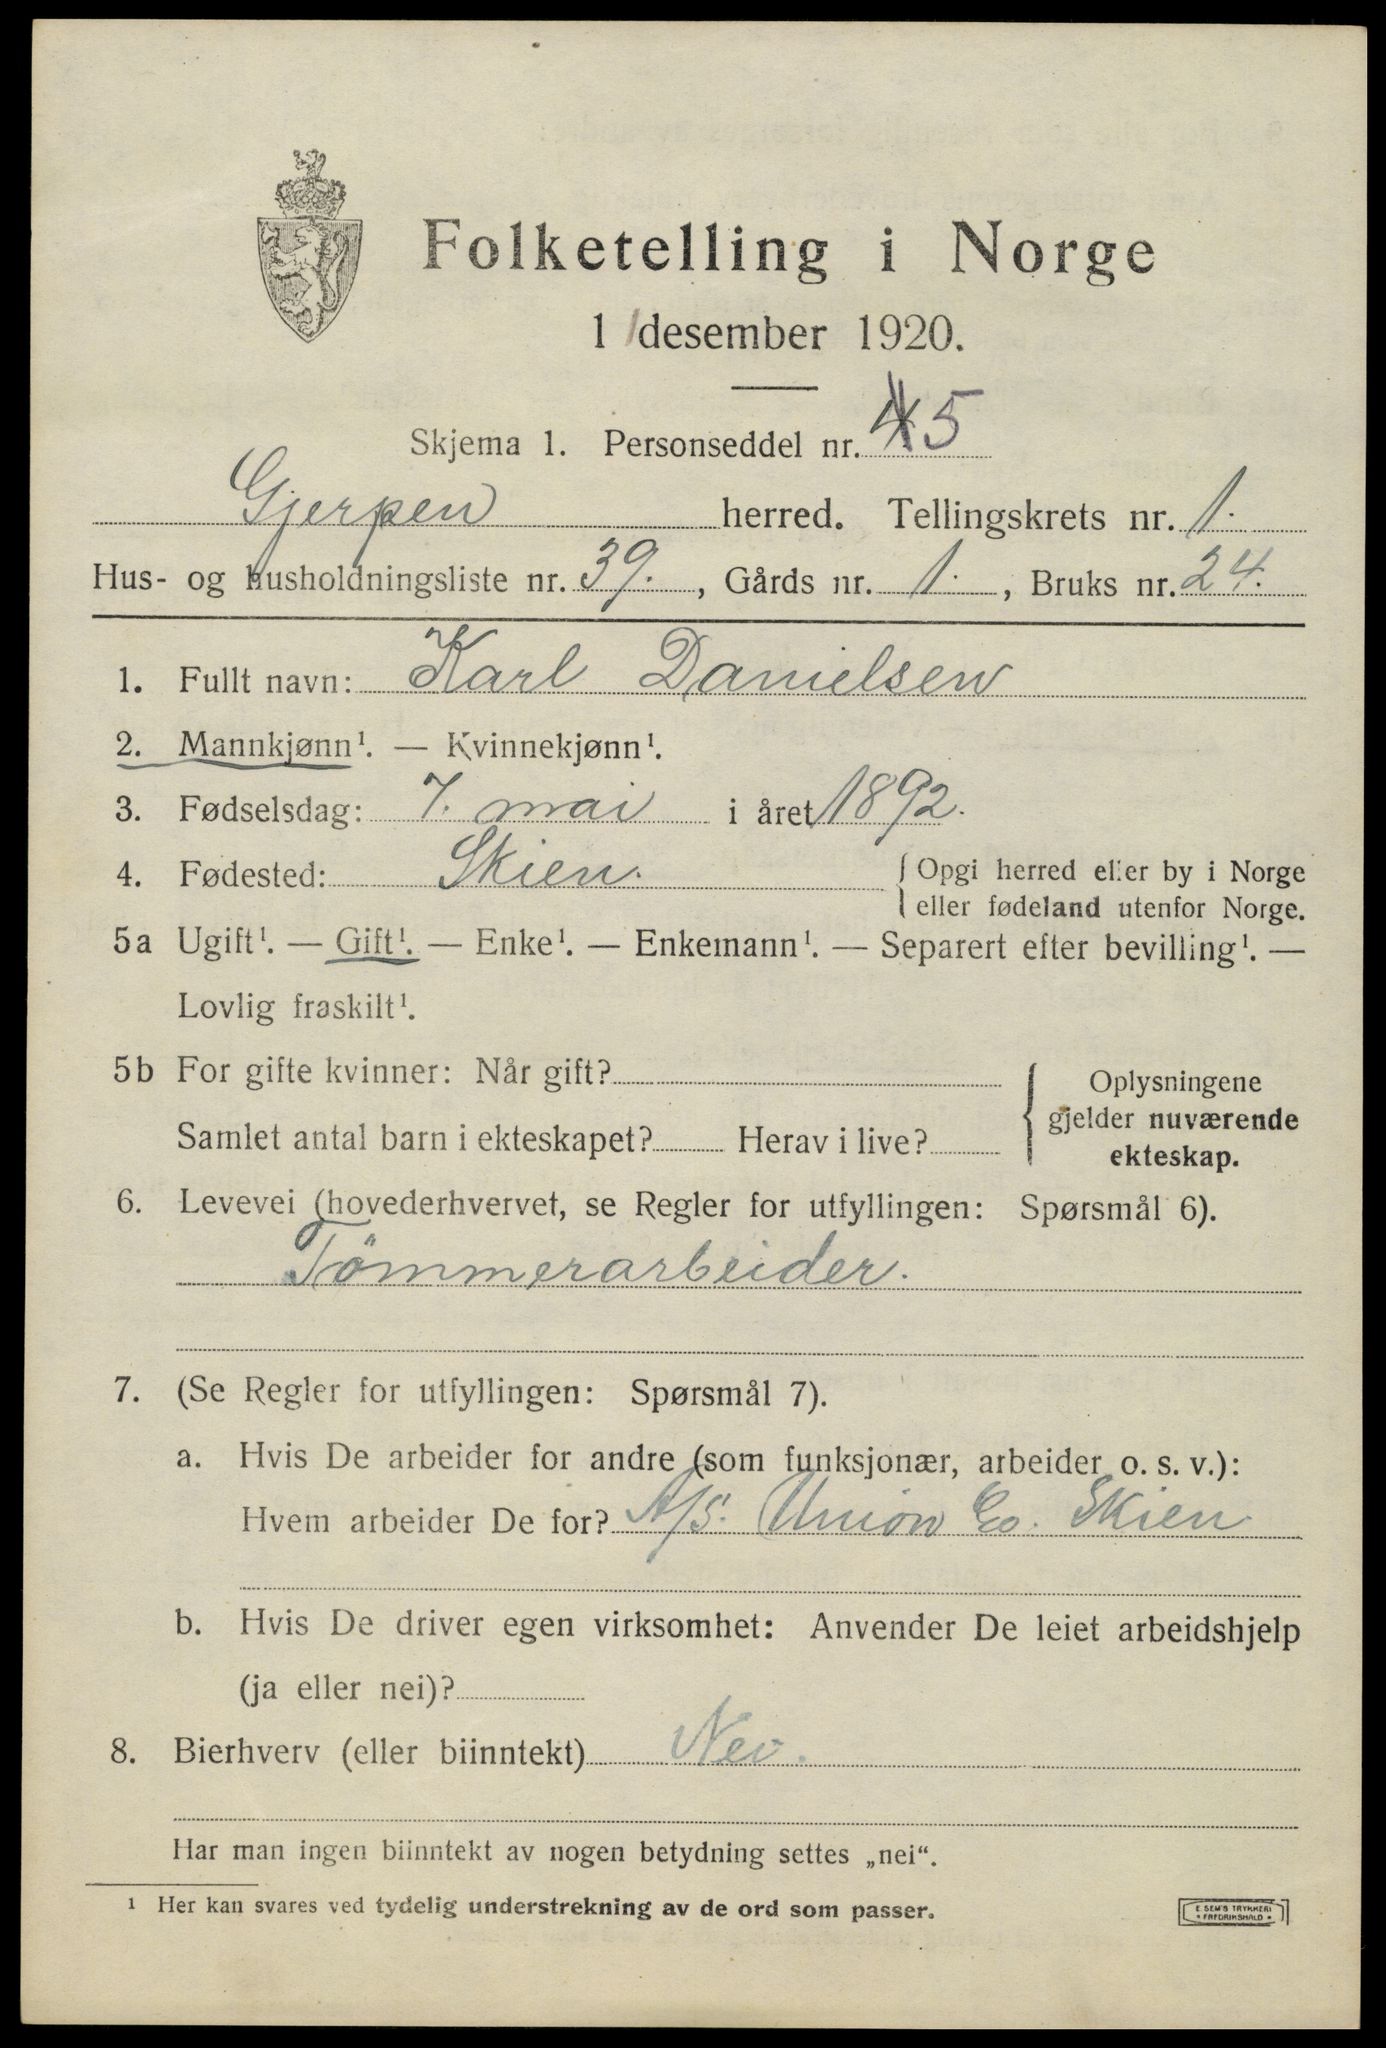 Folketelling i Norge
1 desember 1920.
Skjema 1. Personseddel nr. 5
Gjerpen herred. Tellingskrets nr. 1.
Hus- og husholdningsliste nr. 39. , Gårds nr. 1. , Bruks nr. 24.
1. Fullt navn: Karl Danielsen
2. Mannkjønn¹. — Kvinnekjønn¹.
3. Fødselsdag: 7. mai i året 1892.
4. Fødested: Skien. { Opgi herred eller by i Norge
eller fødeland utenfor Norge.
5a Ugift¹. — Gift¹. — Enke¹. — Enkemann¹. — Separert efter bevilling¹. —
Lovlig fraskilt¹.
5b For gifte kvinner: Når gift? { Oplysningene
gjelder nuværende
Samlet antal barn i ekteskapet? Herav i live?
ekteskap.
6. Levevei (hovederhvervet, se Regler for utfyllingen: Spørsmål 6).
Tömmerarbeider.
7. (Se Regler for utfyllingen: Spørsmål 7).
a. Hvis De arbeider for andre (som funksjonær, arbeider o. s. v.):
Hvem arbeider De for? A/S. Union Co. Skien.
b. Hvis De driver egen virksomhet: Anvender De leiet arbeidshjelp
(ja eller nei)?
8. Bierhverv (eller biinntekt) Nei.
Har man ingen biinntekt av nogen betydning settes „nei“.
¹ Her kan svares ved tydelig understrekning av de ord som passer.
E. SEM'S TRYKKERI
• FREDRIKSHALD •